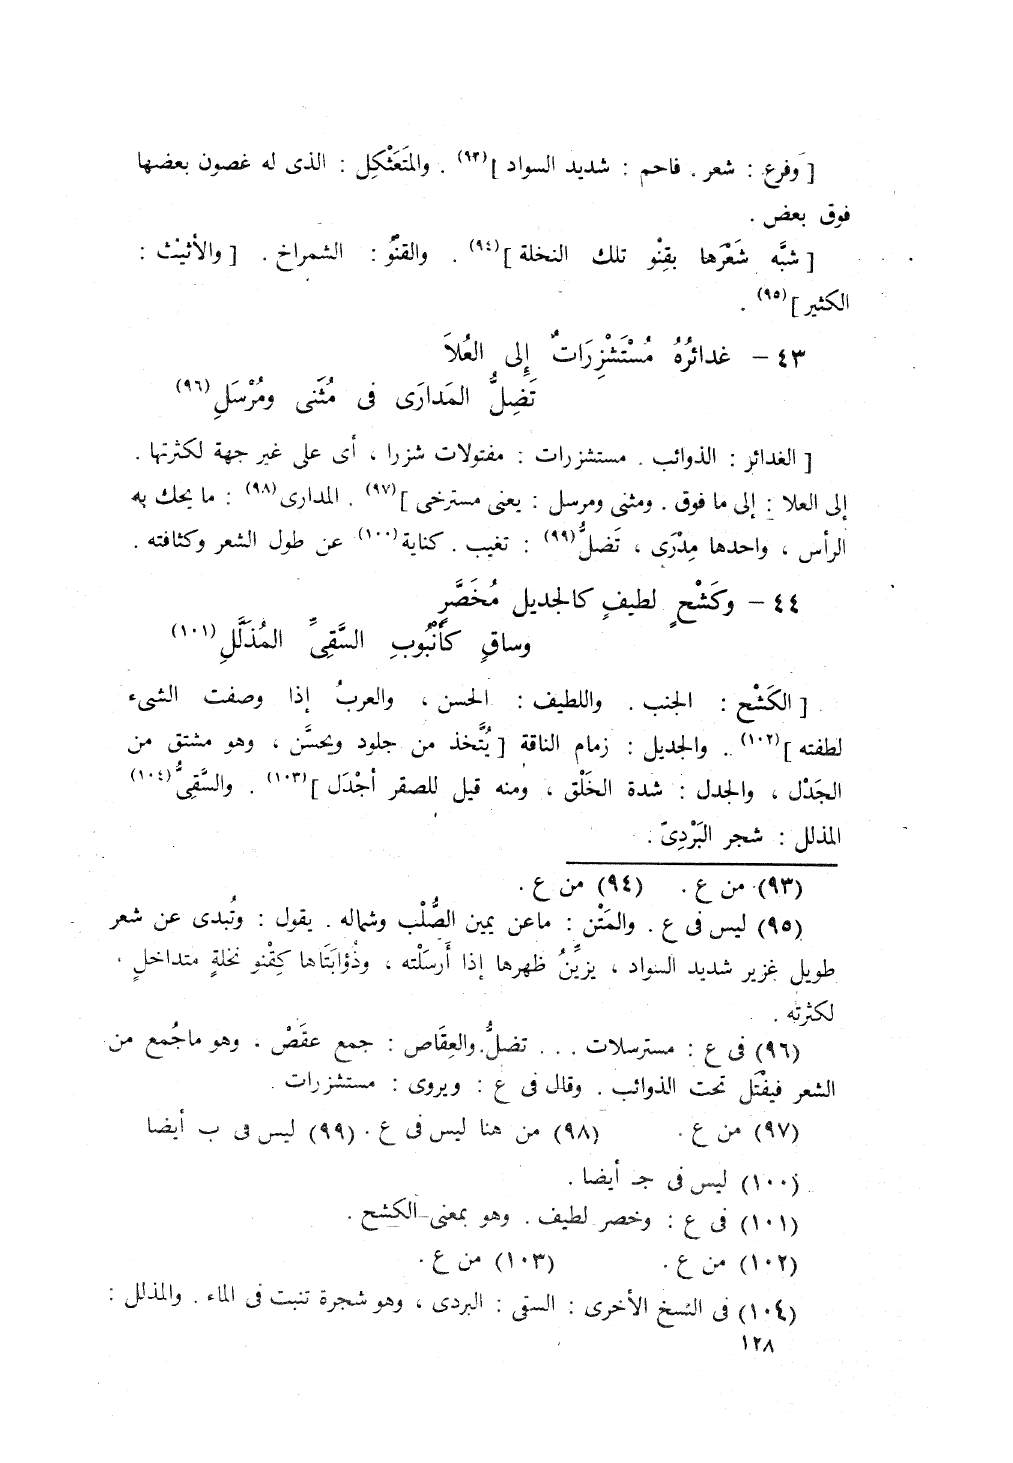 [ وفرع : شعر . فاحم : شديد السواد ](٩٣) . والمتَعَثْكِل : الذى له غصون بعضها
فوق بعض .
[ شبَّه شَعْرَها بقِنْو تلك النخلة ](٩٤) . والقنْوُ : الشمراخ . [ والأثينْث :
الكثير ](٩٥) .
٤٣ – غدائرُهُ مُسْتَشْزِرَاتٌ إِلى العُلاَ
تَضِلُّ المَدارَى فى مُثَنى ومُرْسَلِ(٩٦)
[ الغدائر : الذوائب . مستشزرات : مفتولات شزرا ، أى على غير جهة لكثرتها .
إلى العلا : إلى ما فوق . ومثنى ومرسل : يعنى مسترخى ](٩٧) . المدارى(٩٨) : ما يحك به
الرأس ، واحدها مِدْرَى ، تَضلُّ(٩٩) : تغيب . كناية(١٠٠) عن طول الشعر وكثافته .
٤٤ – وكَشْحٍ لطيفٍ كالجديل مُخَصَّرٍ
وساقٍ كأنْبُوبِ السَّقِىِّ المُذَلَّلِ(١٠١)
[ الكَشْح : الجنب . واللطيف : الحسن ، والعربُ إذا وصفت الشىء
لطفته ](١٠٢) . والجديل : زمام الناقة [ يُتَّخذ من جلود ويحسَّن ، وهو مشتق من
الجَدْل ، والجدل : شدة الخَلْق ، ومنه قيل للصقر أجْدَل ](١٠٣) . والسَّقِىُّ(١٠٤)
المذلل : شجر البَرْدِىّ .
(٩٣) من ع . (٩٤) من ع .
(٩٥) ليس فى ع . والمَتْن : ماعن يمين الصُّلْب وشماله . يقول : وتُبدى عن شعر
طويل غزير شديد السواد ، يزيِّنُ ظهرها إذا أَرسَلْته ، وذُؤابَتَاها كِقْنو نخلةٍ متداخلٍ ،
لكثرته .
(٩٦) فى ع : مسترسلات . . . تضلُّ. والعِقَاص : جمع عقَصْ ، وهو ماجُمع من
الشعر فيفْتَل تحت الذوائب . وقال فى ع : ويروى : مستشزرات .
(٩٧) من ع . (٩٨) من هنا ليس فى ع . (٩٩) ليس فى ب أيضا
(١٠٠) ليس فى جـ أيضا .
(١٠١) فى ع : وخصر لطيف . وهو بمعنى الكشح .
(١٠٢) من ع . (١٠٣) من ع .
(١٠٤) فى النسخ الأخرى : السقى : البردى ، وهو شجرة تنبت فى الماء . والمذلل :
١٢٨